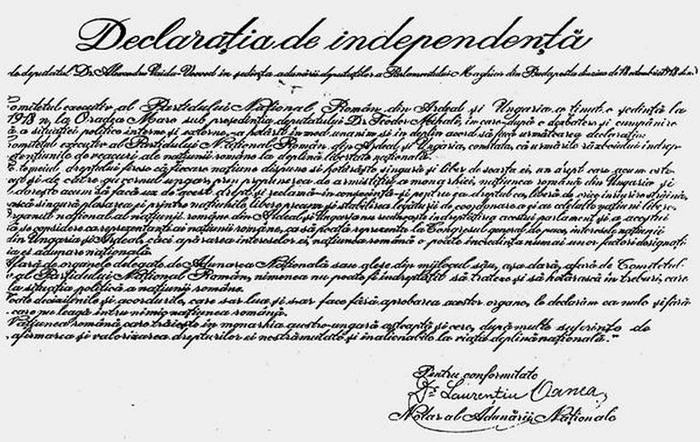 Declarația de independență
deputatul Dr. Alexandru Vaida-Voevod în ședința adunării deputaților a Parlamentului Maghiar din Budapesta din ziua de 18 octombrie 1918
Comitetul executiv al Partidului Național Român din Ardeal și Ungaria, a ținut o ședință la
1918 n, la Oradea Mare sub președinția deputatului Dr. Teodor Mihali, în care, după o desbatere și cumpănire
a situației politice interne și externe, a hotărît în mod unanim și în deplin acord să facă următoarea declarație:
Comitetul executiv al Partidului Național Român din Ardeal și Ungaria, constată, că urmările războiului îndrep-
de veacuri ale națiunii române la deplină libertate națională.
temeiul dreptului firesc că fiecare națiune dispune și hotărăște singură și liber de soartea ei, un drept care acum este
și de către guvernul ungar, prin propunerea de armistițiu a monarhiei, națiunea română din Ungaria și
dorește acum să facă uz de acest drept și reclamă în consecință și pentru ea dreptul, ca liberă de orice înrîurire străină,
singură plasarea ei printre națiunile libere precum și stabilirea legăturii de coordonare a ei cu alte națiuni libere.
Organul național al națiunii române din Ardeal și Ungaria nu recunoaște îndreptățirea acestui parlament și a acestui
a se considere ca reprezentanți ai națiunii române, ca să poată reprezenta la Congresul general de pace, interesele națiunii
din Ungaria și Ardeal, căci apărarea intereselor ei, națiunea română o poate încredința numai unor factori designați
ei adunare națională.
Afară de organele delegate de Adunarea Națională sau alese din mijlocul său, așa dară, afară de Comitetul
al Partidului Național Român, nimenea nu poate fi îndreptățit să trateze și să hotărască în treburi, care
la situația politică a națiunii române.
Toate decisiunile și acordurile, care s-ar lua și s-ar face fără aprobarea acestor organe, le declarăm ca nule și fără
care nu leagă întru nimic națiunea română.
Națiunea română care trăiește în monarhia austro-ungară așteaptă și cere, după multe suferințe de
afirmarea și valorizarea drepturilor ei nestrămutate și inalienabile la viața deplină națională."
Pentru conformitate
Dr. Laurențiu Oanea,
Notar al Adunării Naționale